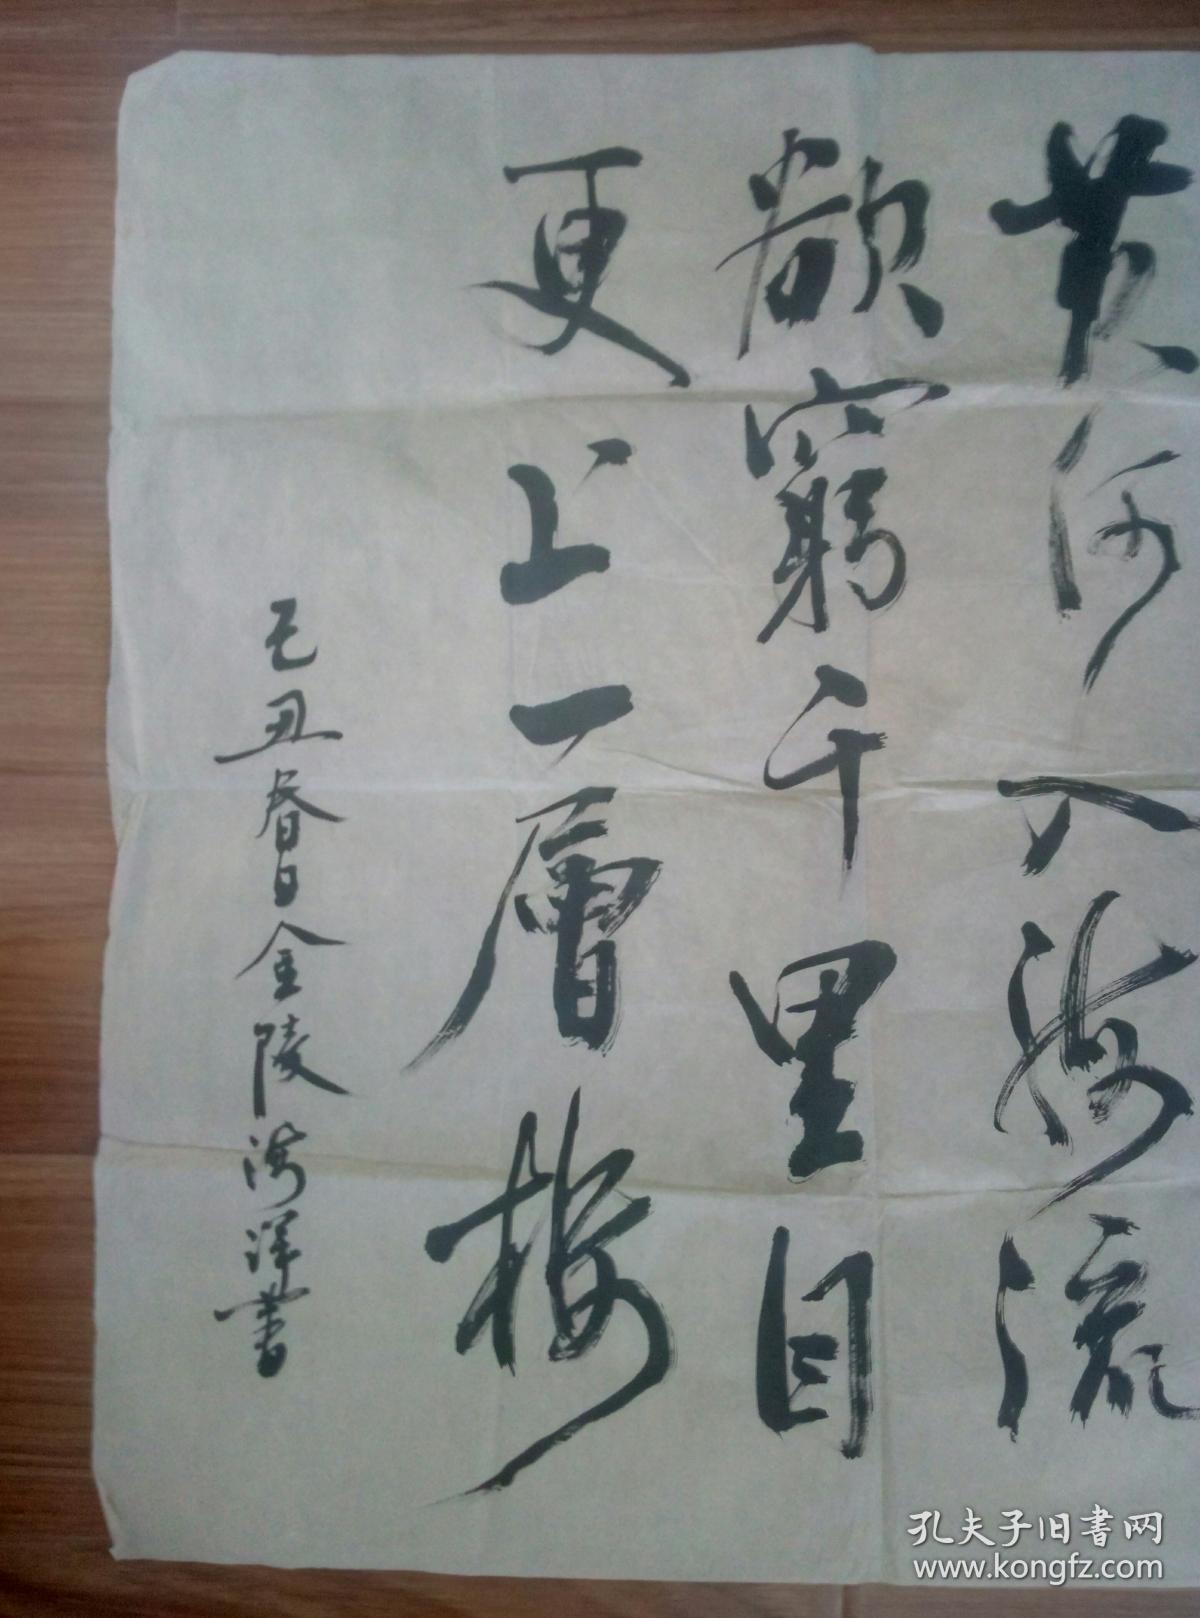 黄河入海流
欲窮千里目
更上一層楼
己丑春日金陵海洋書
孔夫子旧書网
www.kongfz.com